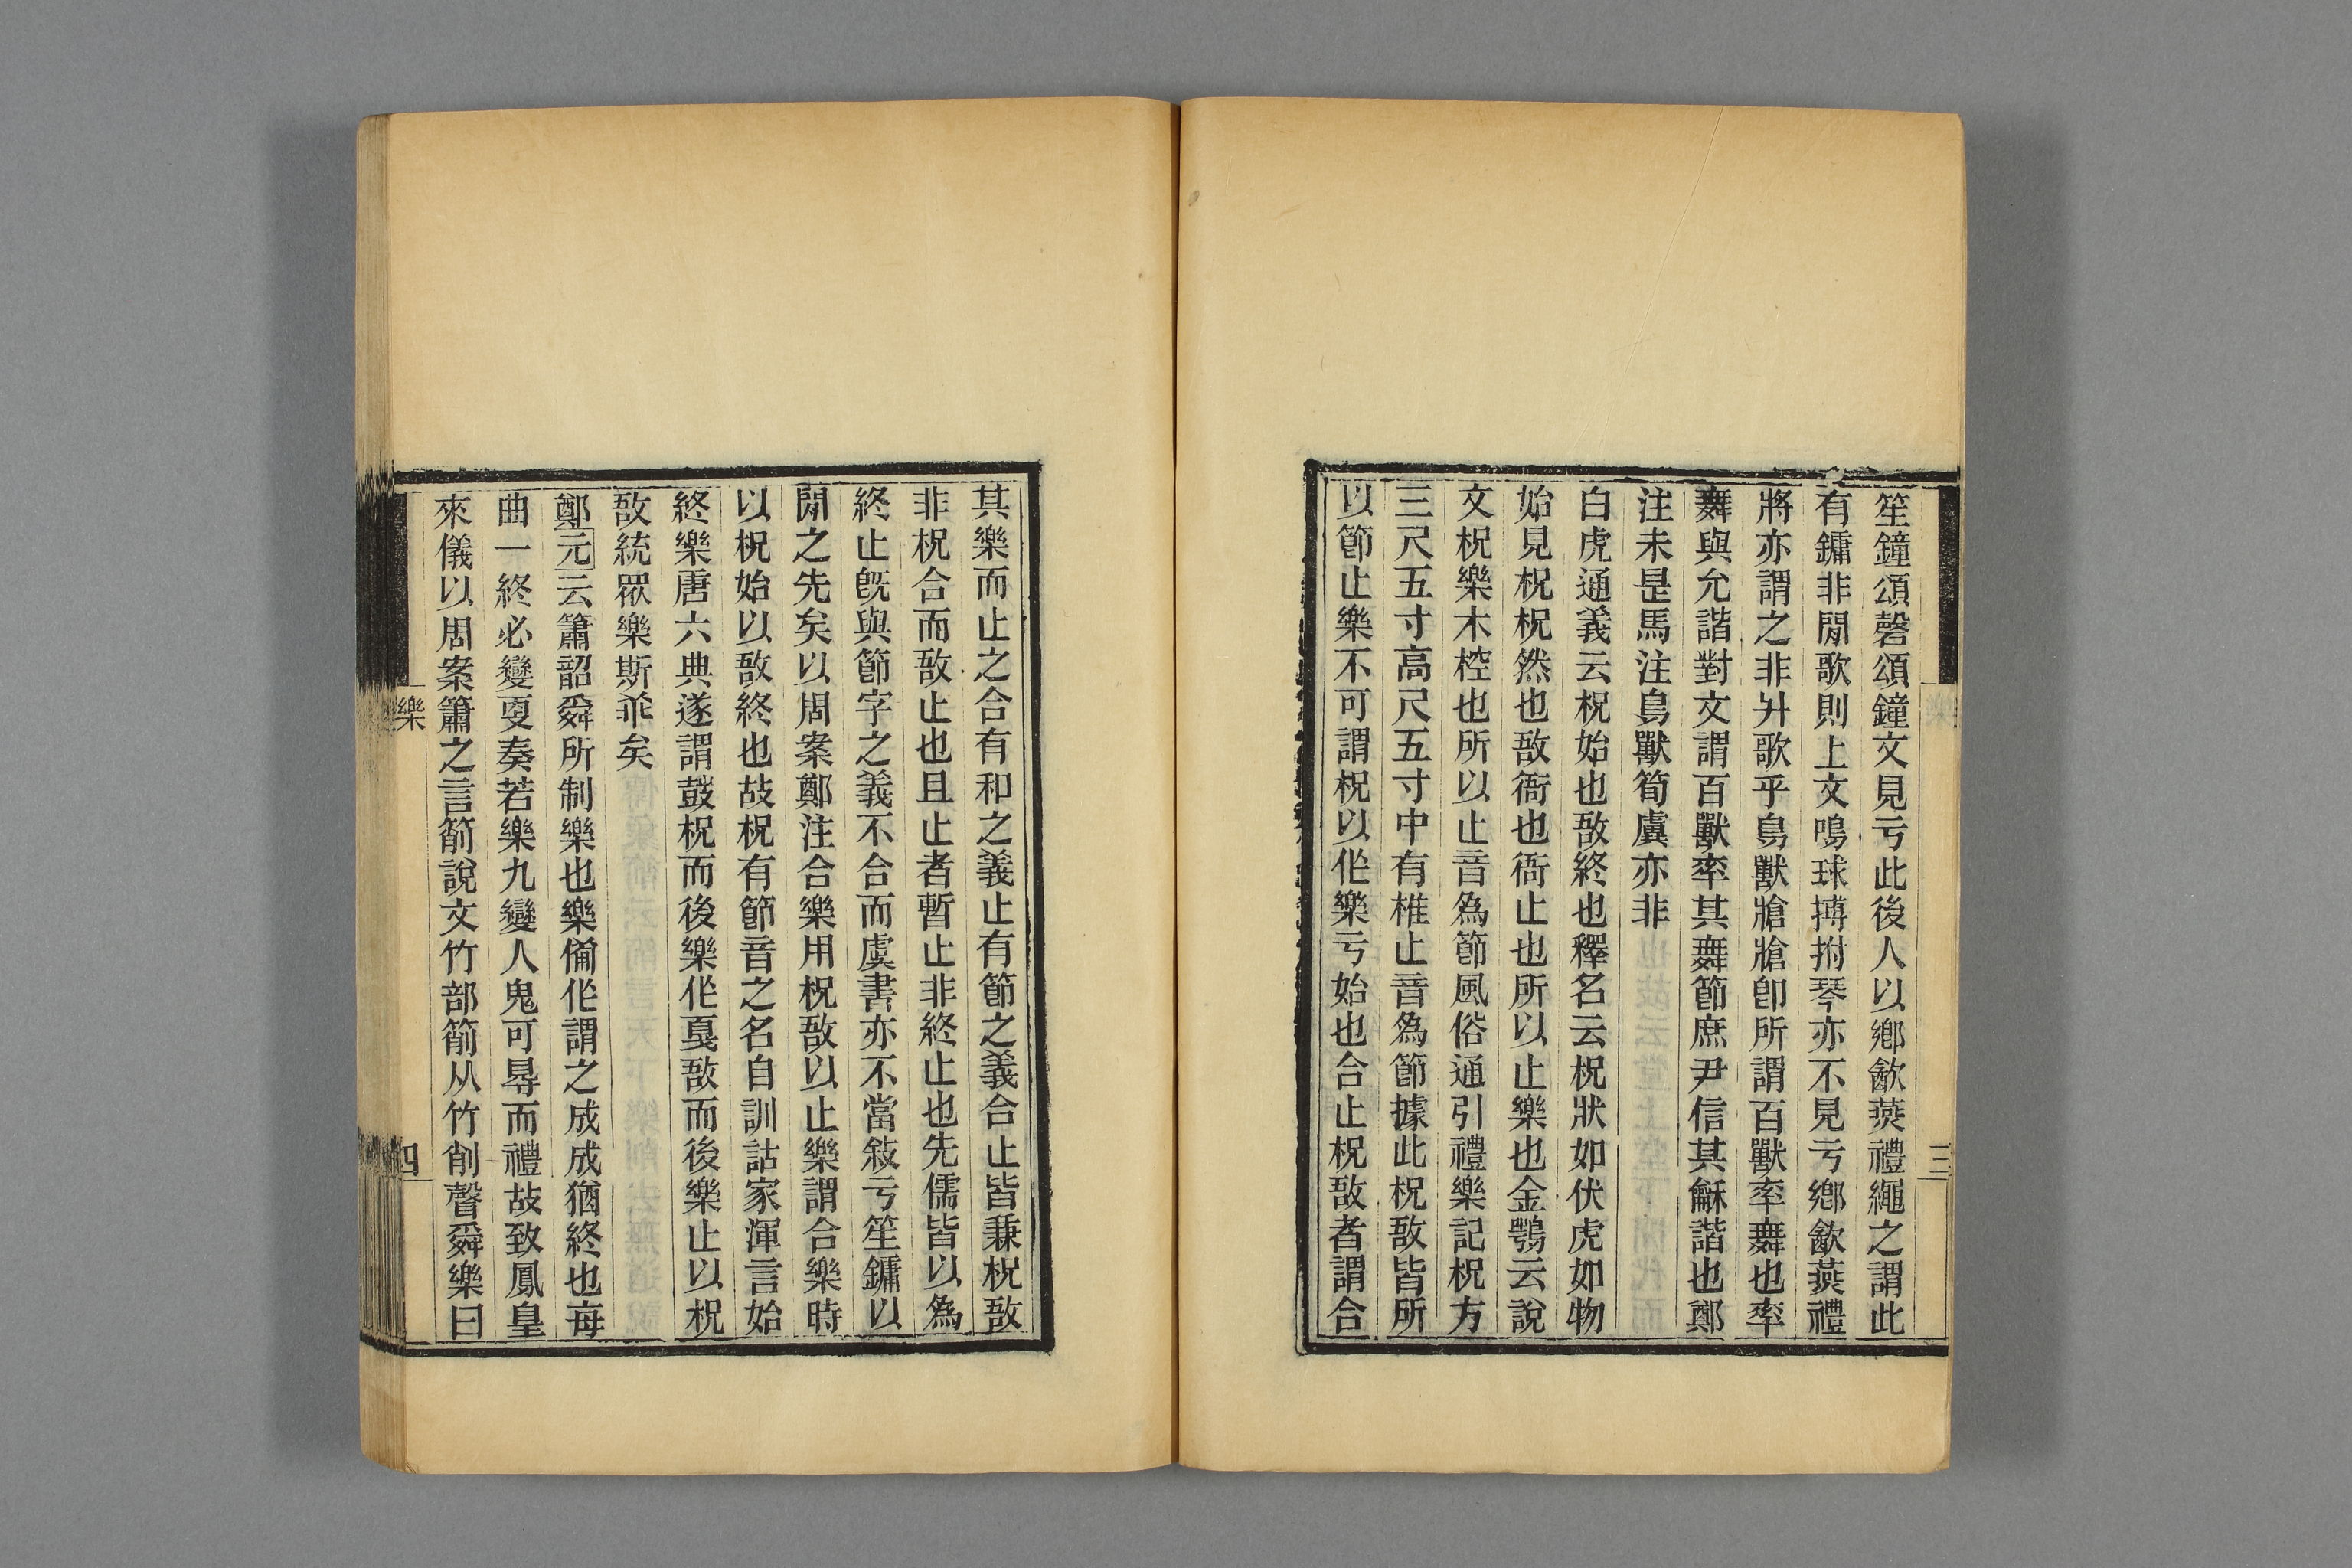 笙鐘頌磬頌鐘文見亏此後人以鄉歙燕禮繩之謂此
有鏞非閒歌則上文鳴球搏拊琴亦不見亏鄉歙燕禮
將亦謂之非升歌乎鳥獸牄牄卽所謂百獸率舞也率
舞與允諧對文謂百獸率其舞節庶尹信其龢諧也鄭
注未是馬注鳥獸筍虡亦非
白虎通義云柷始也敔終也釋名云柷狀如伏虎如物
始見柷柷然也敔衙也衙止也所以止樂也金鶚云說
文柷樂木椌也所以止音為節風俗通引禮樂記柷方
三尺五寸高尺五寸中有椎止音為節據此柷敔皆所
以節止樂不可謂柷以作樂亏始也合止柷敔者謂合
樂
三
其樂而止之合有和之義止有節之義合止皆兼柷敔
非柷合而敔止也且止者暫止非終止也先儒皆以為
終止旣與節字之義不合而虞書亦不當敍亏笙鏞以
閒之先矣以周案鄭注合樂用柷敔以止樂謂合樂時
以柷始以敔終也故柷有節音之名自訓詁家渾言始
終樂唐六典遂謂鼓柷而後樂作戛敔而後樂止以柷
敔統眾樂斯乖矣
鄭元云簫韶舜所制樂也樂備作謂之成成猶終也每
曲一終必變夏奏若樂九變人鬼可㝵而禮故致鳳皇
來儀以周案簫之言箾說文竹部箾从竹削聲舜樂曰
樂
四